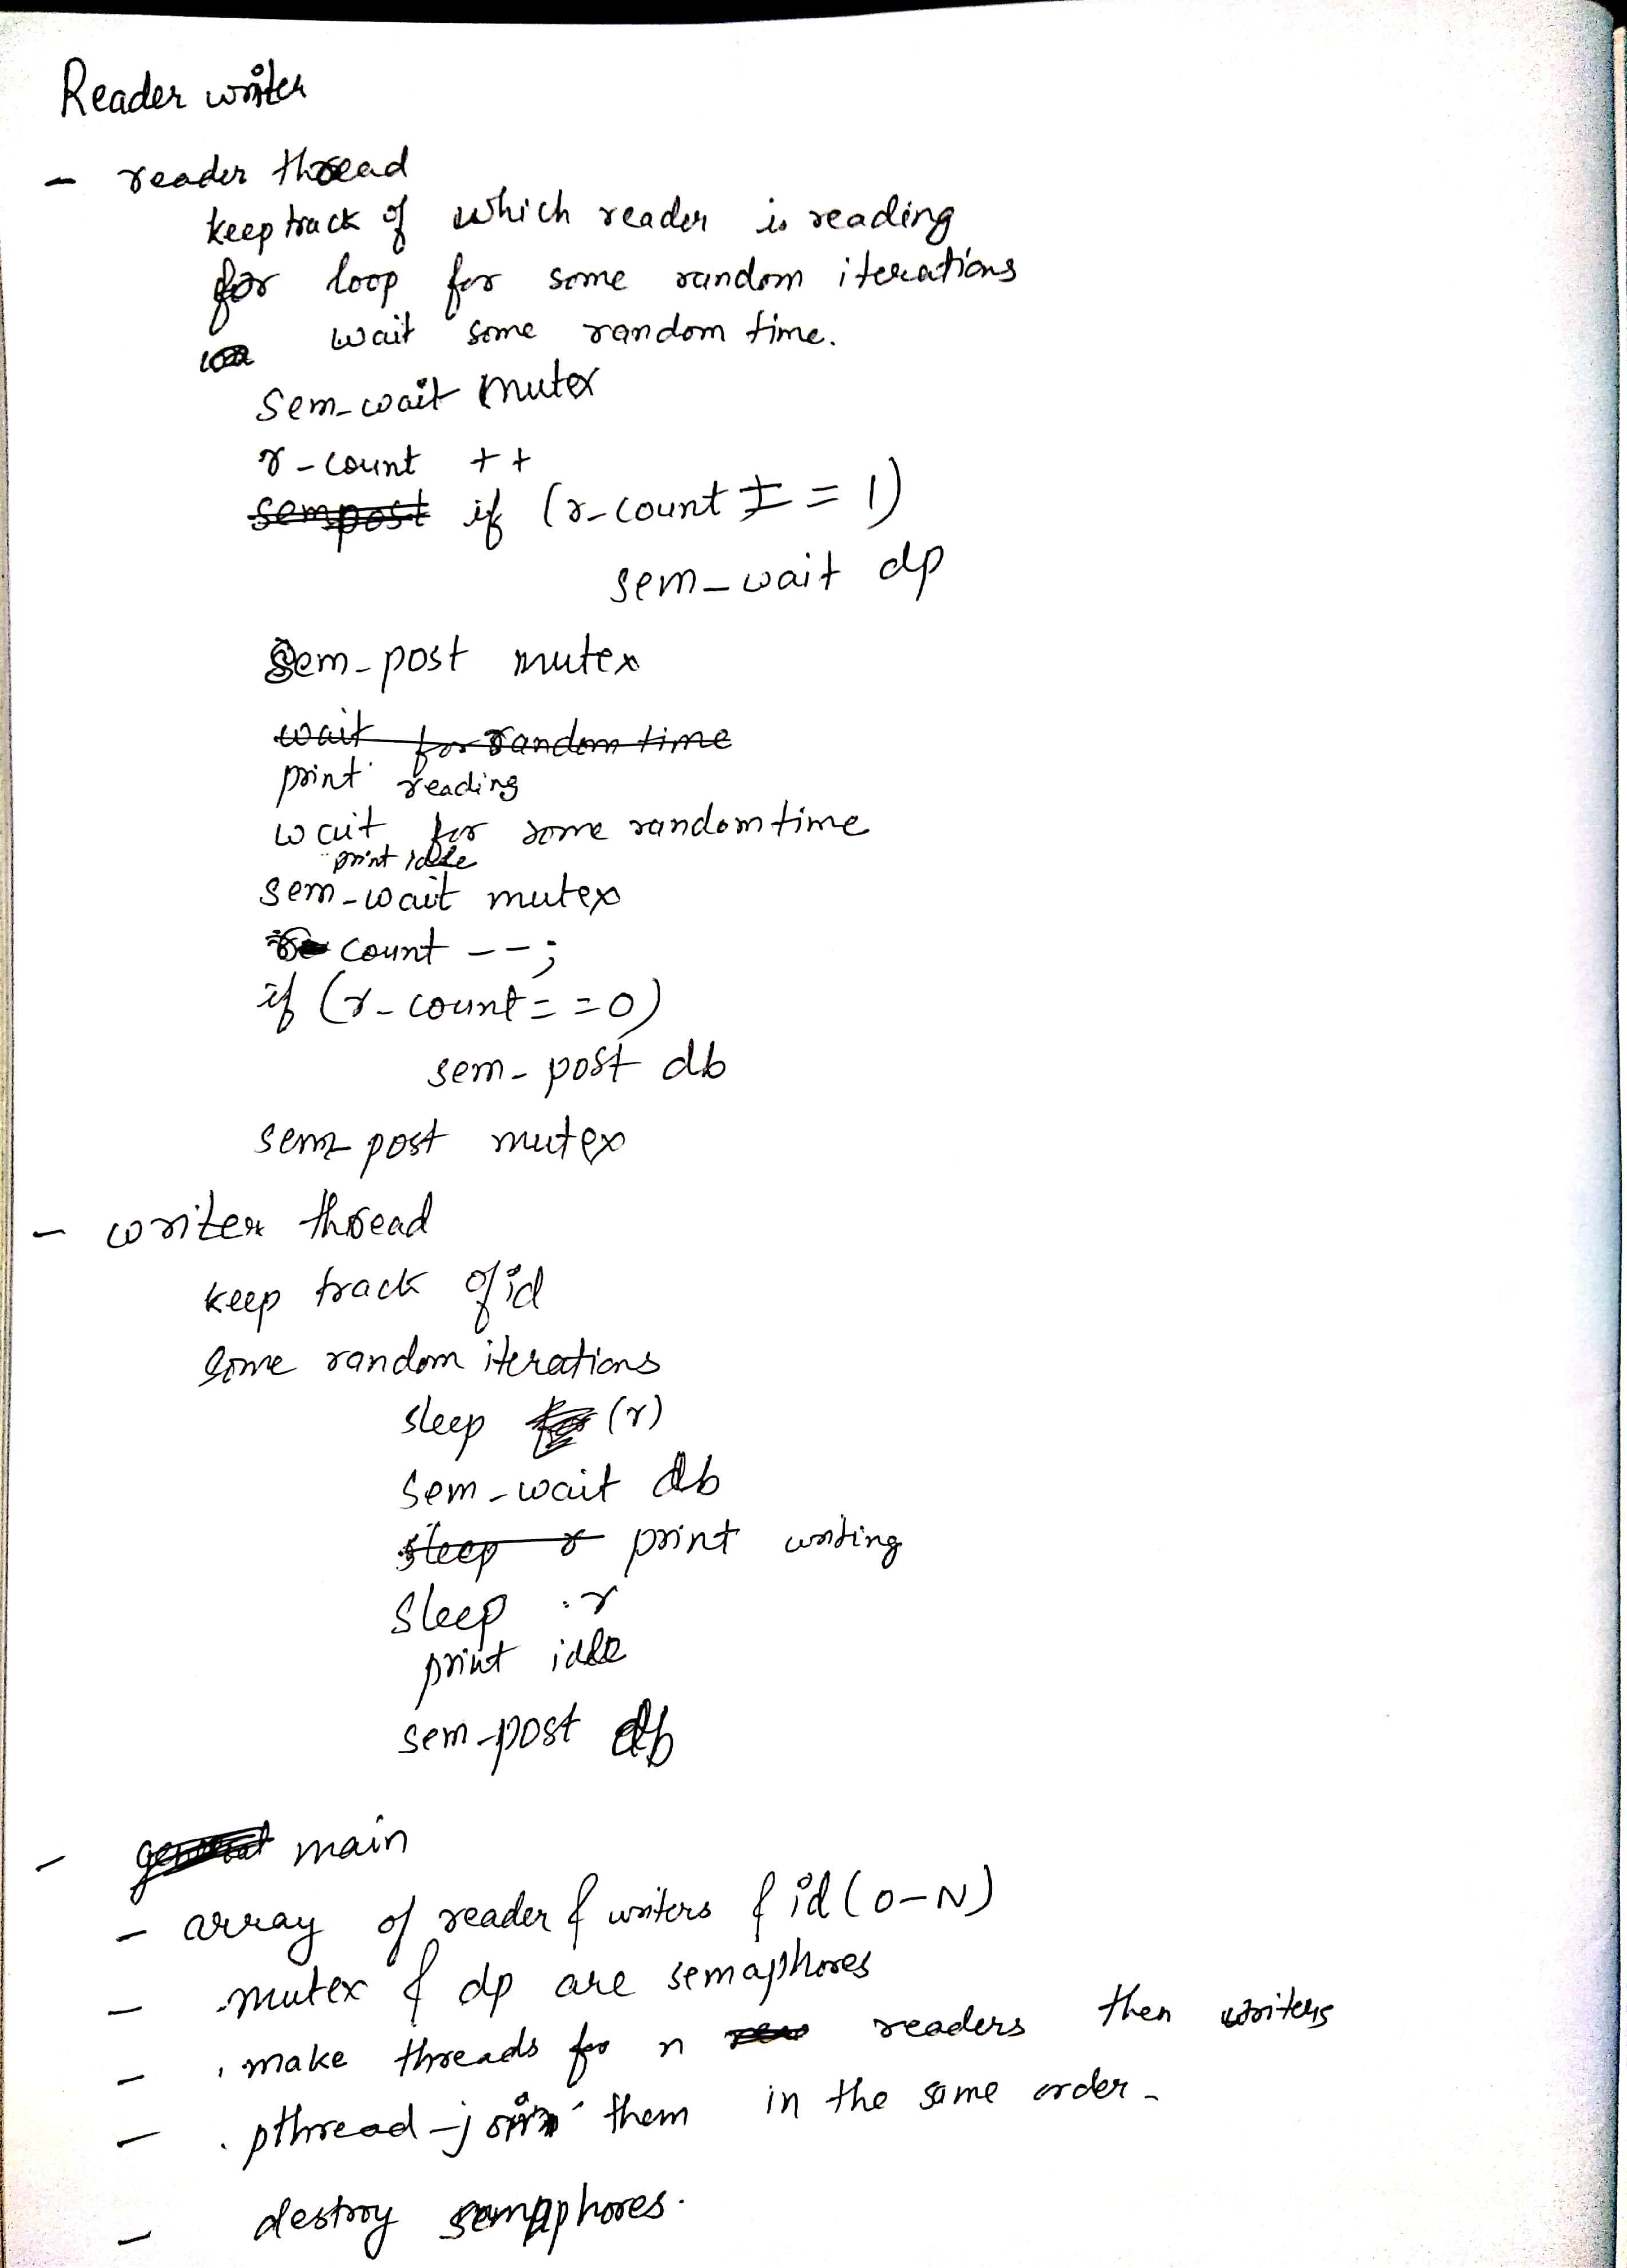 Reader writer
- reader thread
keep track of which reader is reading
for loop for some random iterations
wait some random time.
sem-wait mutex
r-count ++
sempost if (r-count == 1)
sem-wait dp
sem-post mutex
wait for random time
print reading
wait for some random time
print idle
sem-wait mutex
count --;
if (r-count==0)
sem-post db
sem-post mutex
- writer thread
keep track of id
some random iterations
sleep (r)
sem-wait db
sleep r print writing
sleep r
print idle
sem-post db
- main
- array of reader & writers & id (0-N)
- mutex & dp are semaphores
- make threads for n readers then writers
- pthread-join them in the same order.
- destroy semaphores.